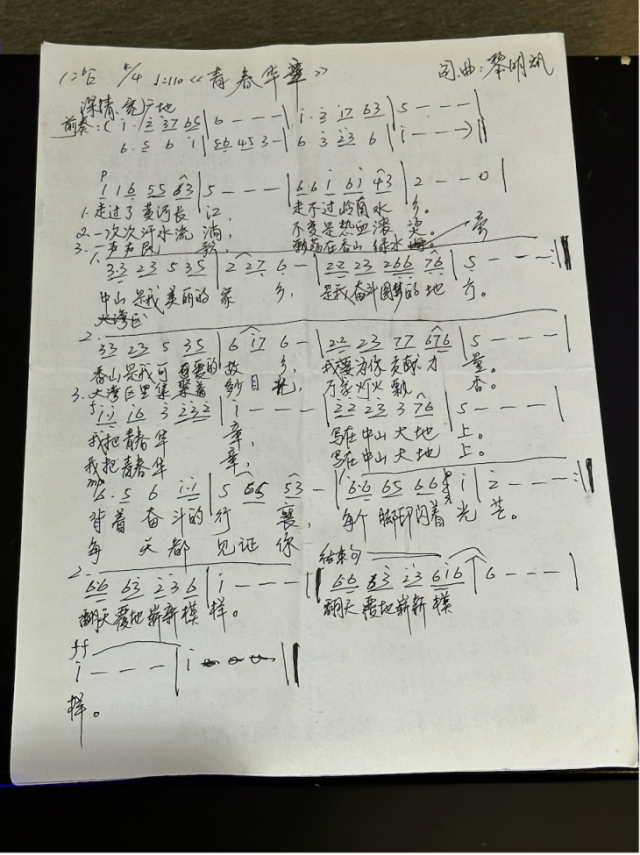 1=♭E 4/4 ♩=110 《青春华章》 词.曲:黎明
深情.宽广地
前奏:( i·2 37 65 | 6 - - - | i·2 17 63 | 5 - - - |
6·5 6 i | 56 453 - | 6 3 23 6 | i - - - ) ||
P
1 16 55 63 | 5 - - - | 66i 6i 43 | 2 - - 0 |
1.走过了黄河长江, 走不过岭南水乡。
2.一次次汗水流淌, 不变是热血滚烫。
3.一声声民歌, 飘荡在香山绿水旁
1.
33 23 5 35 | 2 27 6 - | 22 23 266 76 | 5 - - - :||
中山是我美丽的家乡, 是我奋斗圆梦的地方。
大湾区
2.
33 23 5 35 | 6 i7 6 - | 22 23 77 676 | 5 - - - |
香山是我可爱的故乡, 我要为你贡献力量。
3.大湾区里集聚着 目光, 万家灯火飘香。
f
ii i6 3 222 | i - - - | 22 23 3 76 | 5 - - - |
我把青春华章, 写在中山大地上。
我把青春华章, 写在中山大地上。
mp
6·5 6 i·i | 5 65 53 - | 66 65 66 | i 2 - - - :||
背着奋斗的行囊, 每个脚印闪着光芒。
每天都见证你
结束句
2.
66 63 23 6 | i - - - || 66 63 23 6i6 | 6 - - - |
翻天覆地崭新模样。 翻天覆地崭新模
ff
i - - - | i - - - ||
样。